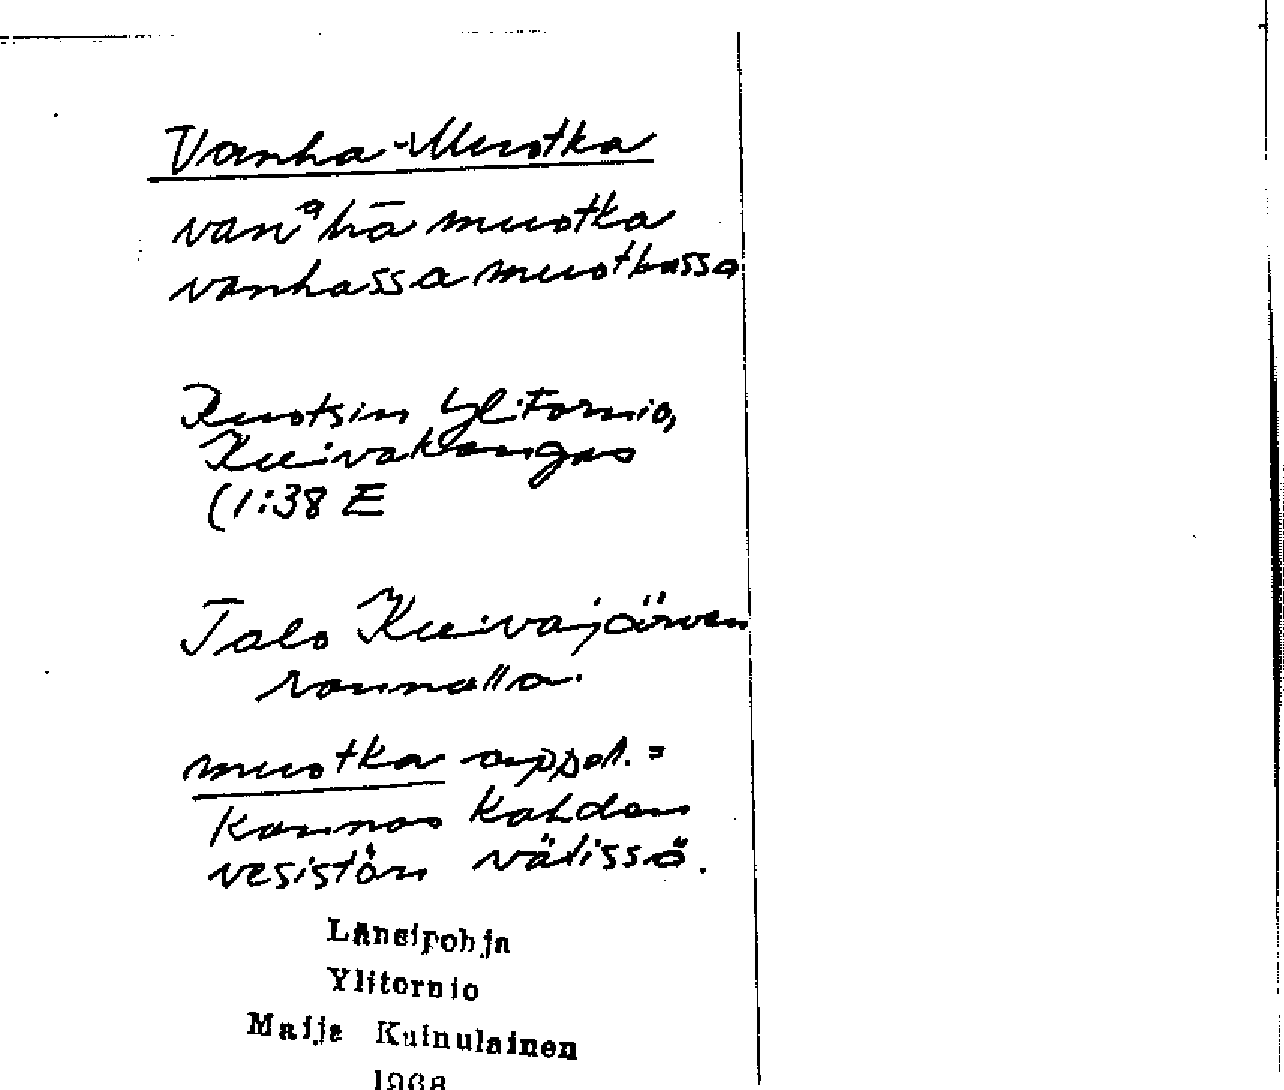 Vanha-Muotka
vanᵃhā muotka
vanhassa muotkassa
Ruotsin Ylitornio,
Kuivakangas
(1:38 E
Talo Kuivajärven
rannalla.
muotka appel. =
kannas kahden
vesistön välissä.
Länsipohja
Ylitornio
Maija Kainulainen
1968